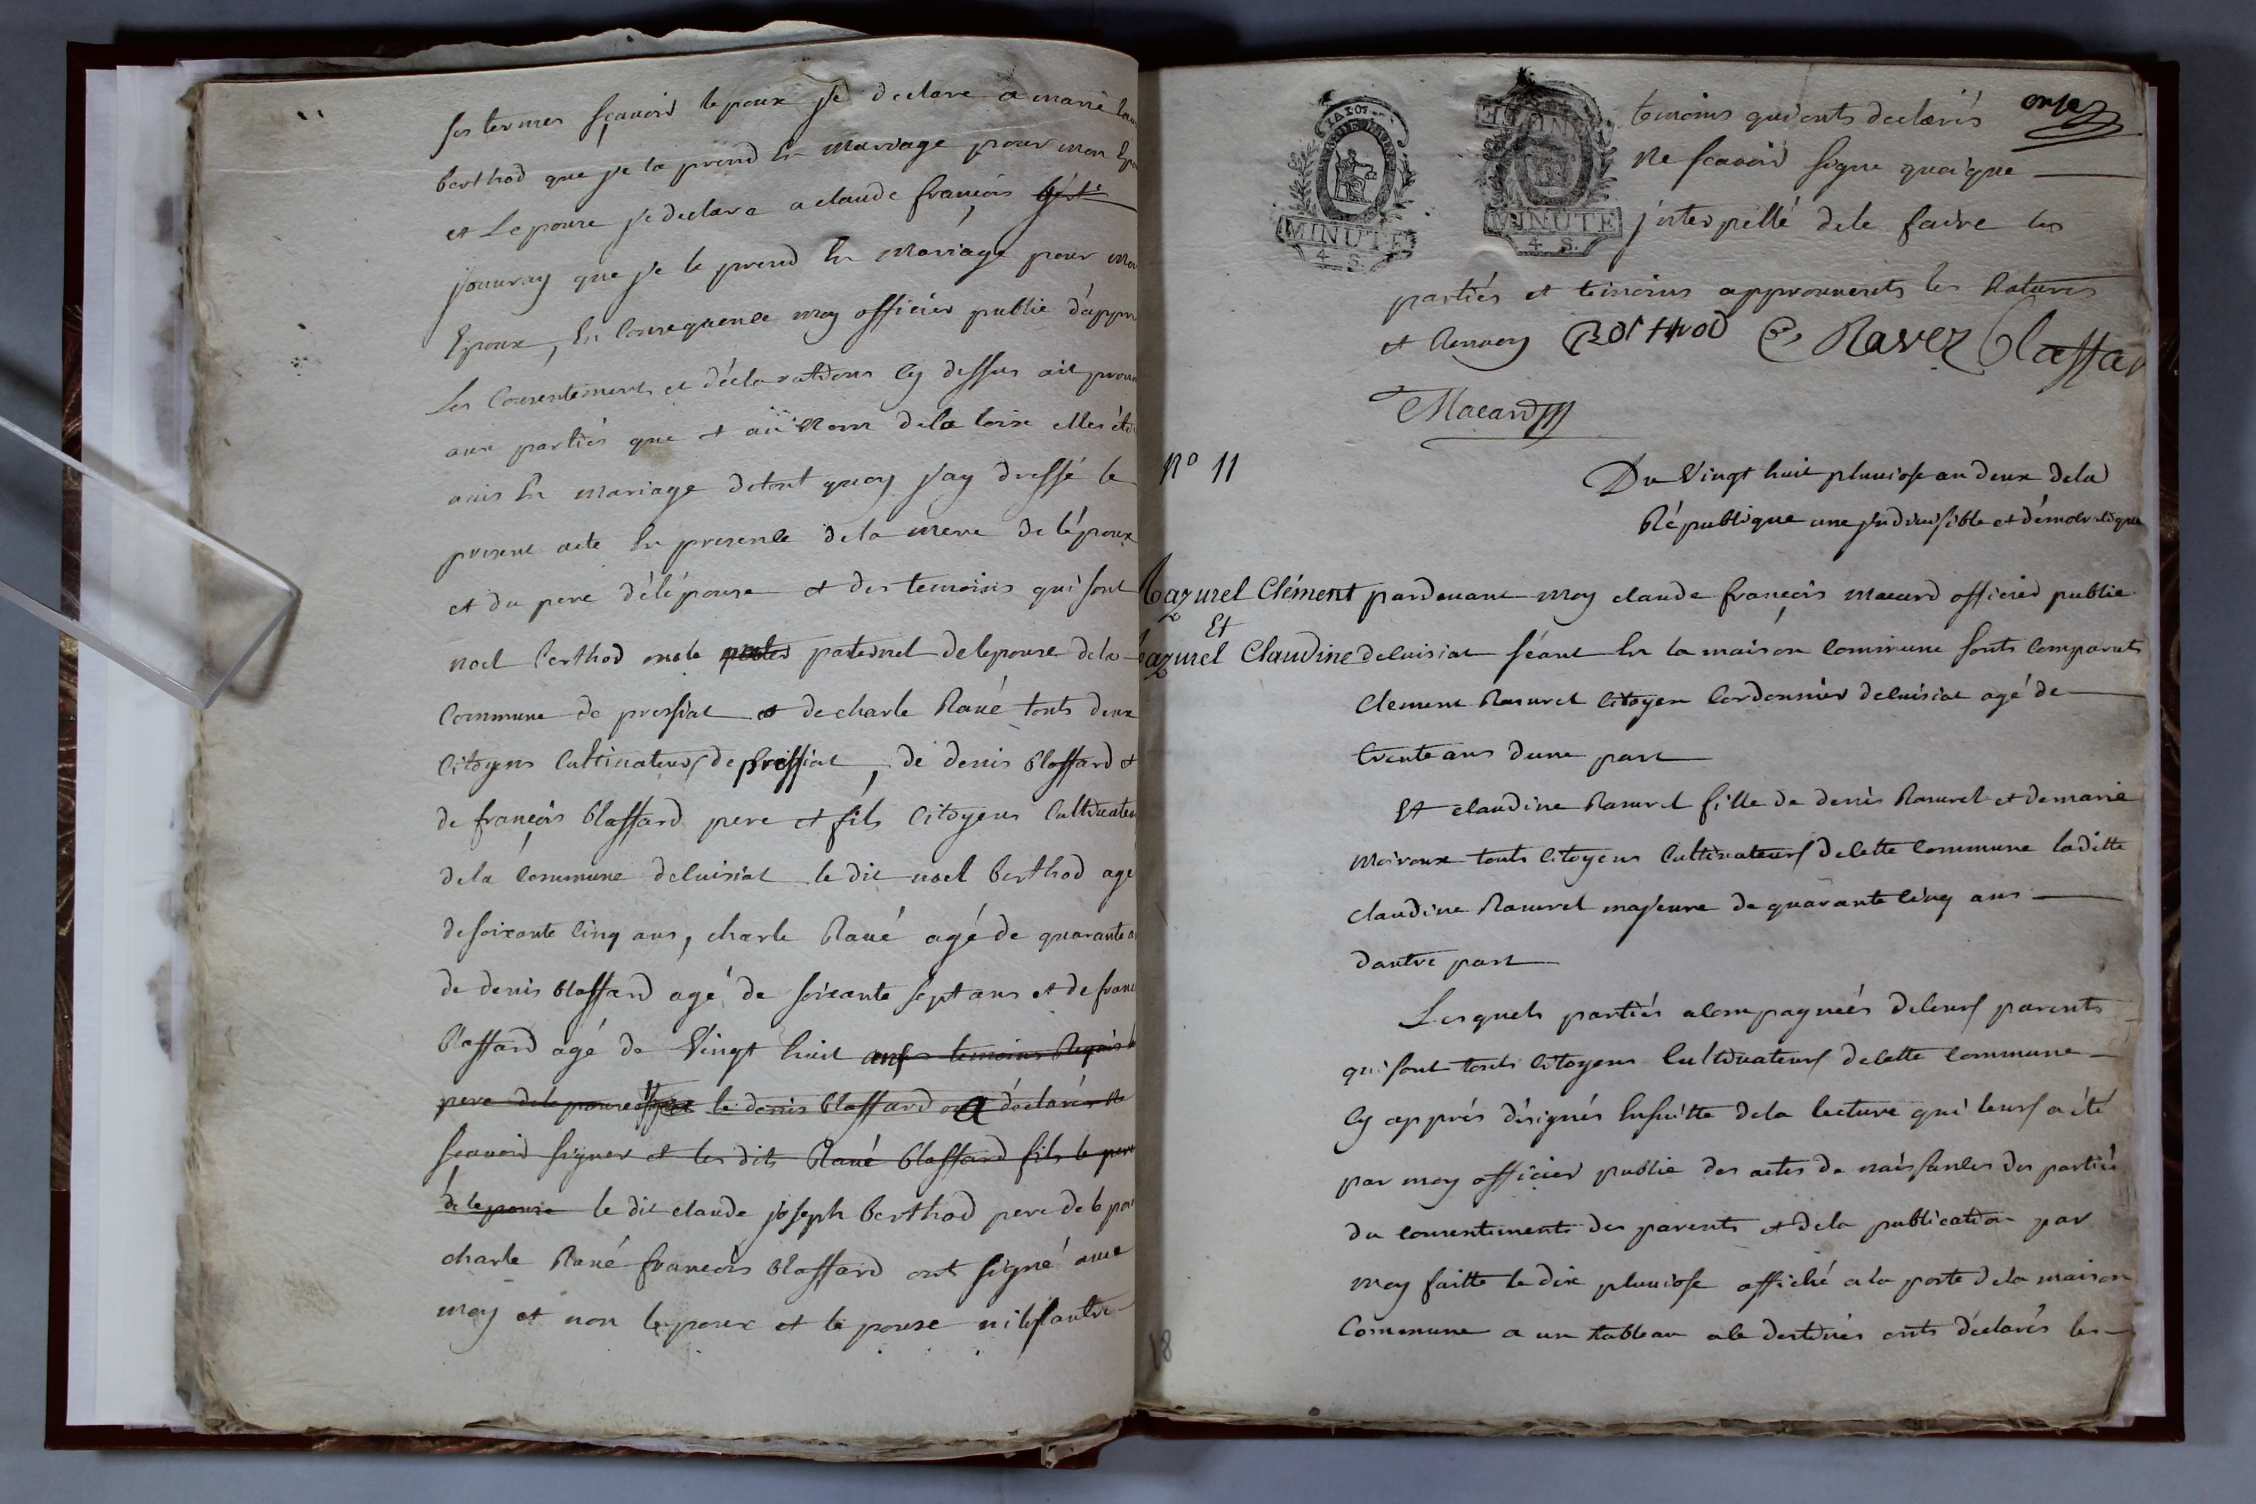 ses termes sçavoir lepoux je declare a marie
berthod que je la prend En mariage pour mon
et Lepouse je declare a claude françois
jouvray que je le prend En mariage pour
Epoux, En Consequence moy officier public d'appr
Les Consentements et déclarations cy dessus ait
aux partiés que et au Nom dela loix elles
unis En mariage detout quoy j'ay dressé le
present acte En presence dela mere de lépoux
et du pere délépouse et des temoins qui sont
noel berthod oncle paternel delepouse dela
Commune de pressiat et de charle Ravé touts deux
Citoyens Cultivateurs de pressiat, de denis blassard et
de françois blassard pere et fils Citoyens Cultivateu
dela Commune deluisiat le dit noel berthod agé
desoixante Cinq ans, charle Ravé agé de quarante
de denis blassard agé de soixante sept ans et de fran
blassard agé de Vingt huit ans temoins Requis
pere delepouse le denis blassard a déclarés Ne
sçavoir signer et les dits Ravé blassard fils le pere
de lepouse le dit claude joseph berthod pere de lepou
charle Ravé françois blassard ont signé avec
moy et non lepoux et lepouse ni les autre
onze
temoins qui onts declarés
Ne scavoir signe quoique
jnterpellé dele faire les
MINUTE
4 S.
MINUTE
4 S.
partiés et temoins approuvents les Ratures
et Renvoy Berthod C Ravez Blassar
Macard
No 11
Du Vingt huit pluviose an deux dela
République une jndivisible et démocratique
Razurel Clément pardevant moy claude françois macard officier public
Et
Razurel Claudine deluisiat séant En la maison Commune sonts Comparuts
Clement Rasurel Citoyen Cordonnier deluisiat agé de
trente ans dune part
Et claudine Rasurel fille de denis Rasurel et de marie
Moiroux touts Citoyens Cultivateurs de Cette Commune laditte
claudine Rasurel majeure de quarante Cinq ans
dautre part
Lesquels partiés acompagnées de leurs parents
qui sont touts Citoyens Cultivateurs de Cette Commune
Cy apprés désignés Ensuitte dela lecture qui leurs a été
par moy officier public des actes de naissances des partiés
du Consentements des parents et dela publication par
moy faitte le dix pluviose affiché a la porte dela maison
Commune a un tableau a Ce destinés onts déclarés les
18